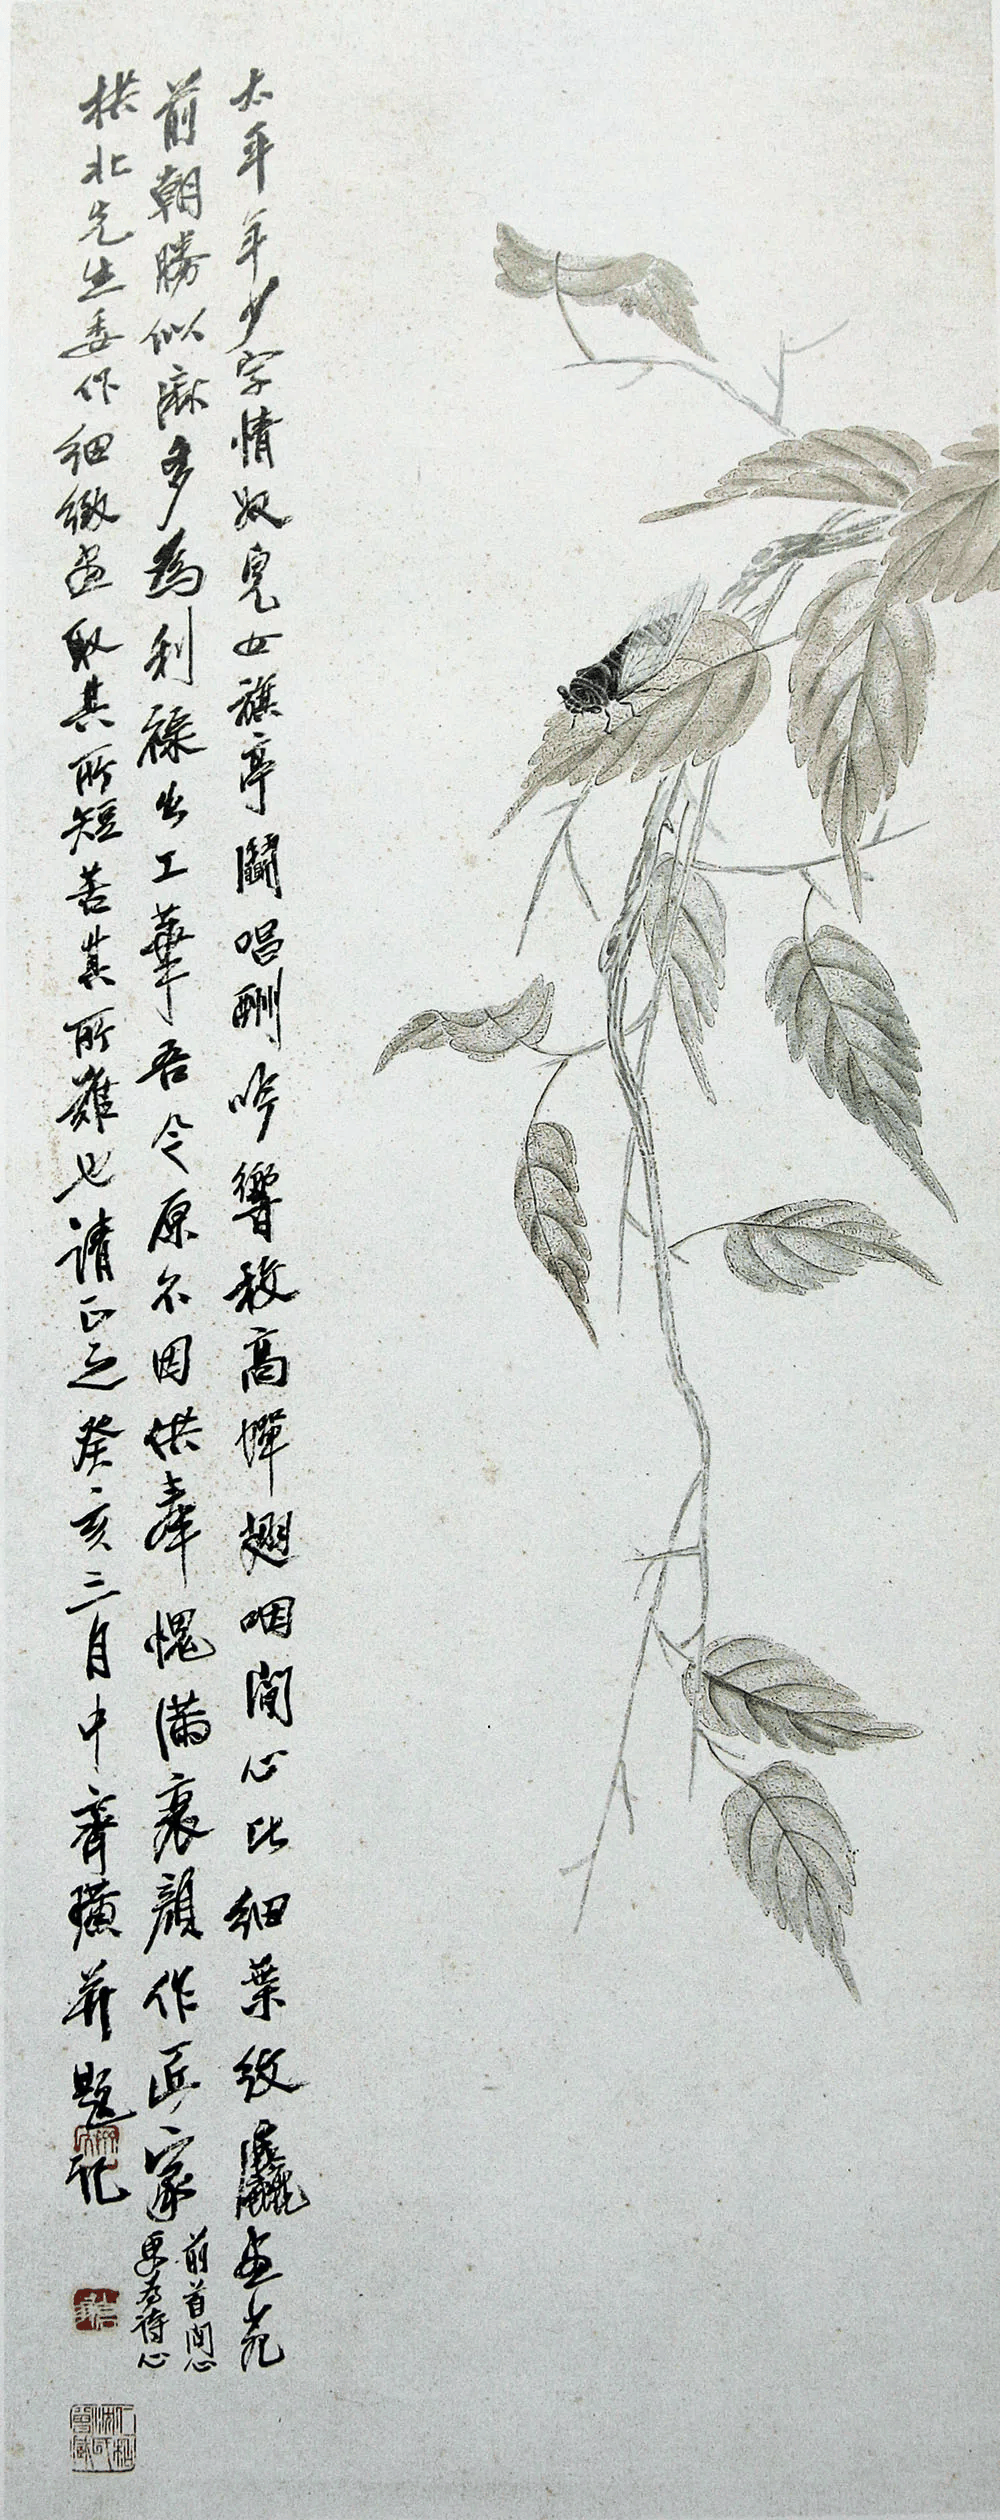 太平年少字情奴兒女旗亭鬭唱酬吟響高蟬翅咽閒心比細葉紋麤畫苑
前朝勝似麻多為利祿出工華吾今原不因供奉愧滿衰顏作匠家
前首閒心
更為詩心
拱北先生委作細緻畫取其所短苦其所難也請正之癸亥三月中齊璜并題記